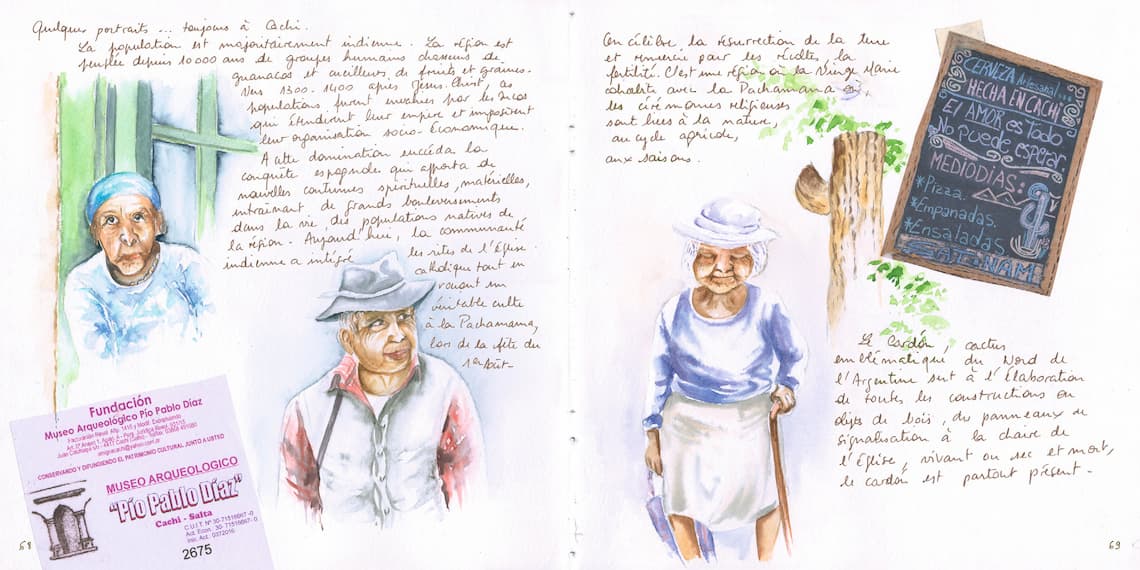 Quelques portraits ... toujours à Cachi.
La population est majoritairement indienne. La région est
peuplée depuis 10 000 ans de groupes humains chasseurs de
guanacos et cueilleurs de fruits et graines.
Vers 1300-1400 après Jésus-Christ, ces
populations furent envahies par les Incas
qui étendirent leur empire et imposèrent
leur organisation socio-économique.
A cette domination succéda la
conquête espagnole qui apporta de
nouvelles coutumes spirituelles, matérielles,
entraînant de grands bouleversements
dans la vie des populations natives de
la région. Aujourd'hui, la communauté
indienne a intégré les rites de l'Eglise
catholique tout en
vouant un
véritable culte
à la Pachamama,
lors de la fête du
1er Août-
Fundación
Museo Arqueológico Pío Pablo Díaz
CONSERVANDO Y DIFUNDIENDO EL PATRIMONIO CULTURAL JUNTO A USTED
MUSEO ARQUEOLOGICO
"Pío Pablo Díaz"
Cachi - Salta
C.U.I.T. Nº 30-71516667-0
Act. Econ.: 30-71516667-0
Inic. Act. 03/2016
2675
68
On célèbre la résurrection de la terre
et remercie pour les récoltes, la
fertilité. C'est une région où la Vierge Marie
cohabite avec la Pachamama où
les cérémonies religieuses
sont liées à la nature,
au cycle agricole,
aux saisons.
CERVEZA Artesanal
HECHA EN CACHI
El AMOR es todo
No puede esperar
MEDIODÍAS:
*Pizza.
*Empanadas.
*Ensaladas
Le Cardón, cactus
emblématique du Nord de
l'Argentine sert à l'élaboration
de toutes les constructions en
objets de bois, du panneaux de
signalisation à la chaire de
l'Eglise, vivant ou sec et mort,
le cardón est partout présent-
69